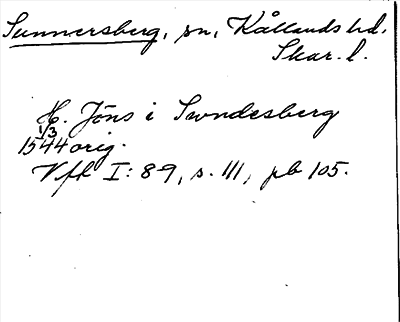 Sunnersberg, sn, Kållands hd.
Skar. l.
H. Jöns i Swndesberg
1/3
1544 orig.
Vfk I: 89, s. 111, pb 105.